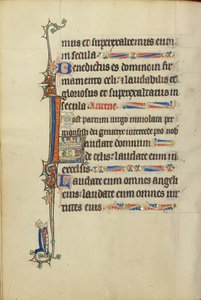 mus et superexaltemus eum
in secula
Benedictus es domine in fir
mamento celi: laudabilis et
gloriosus et superexaltatus in
secula
Post partum uirgo inuiolata per
mansisti dei genitrix intercede pro nob
Laudate dominum
de celis: laudate eum in
excelsis
Laudate eum omnes angeli
eius: laudate eum omnes uir
tutes eius